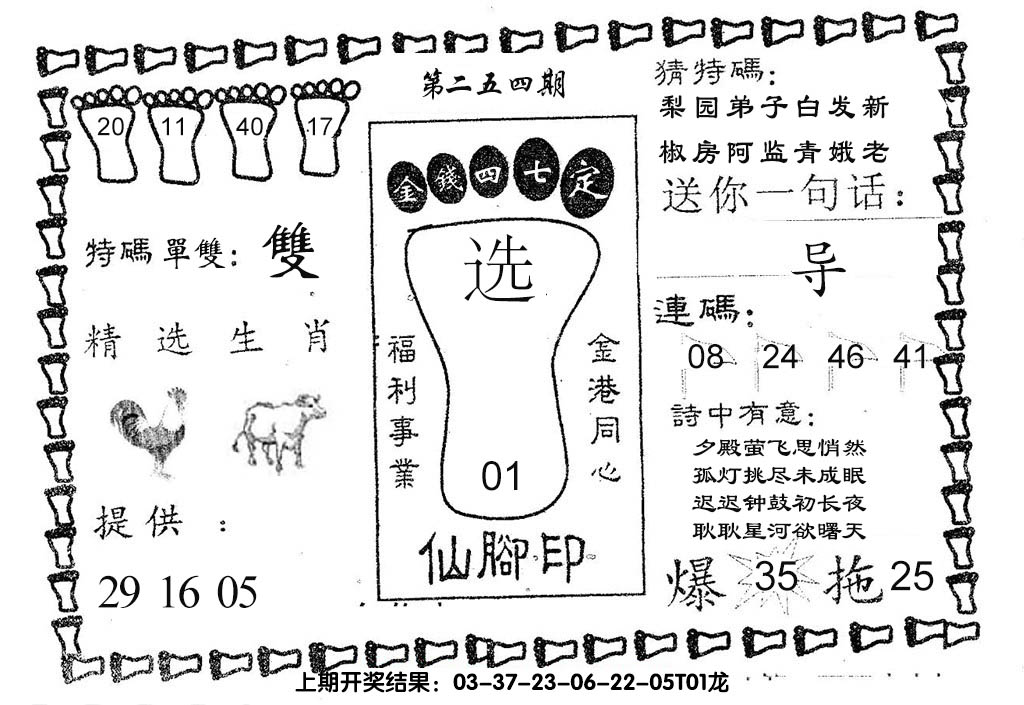 第二五四期
20 11 40 17
特碼單雙：雙
精选生肖
提供：
29 16 05
金錢四七定
选
福利事業
金港同心
01
仙腳印
猜特碼：
梨园弟子白发新
椒房阿监青娥老
送你一句话：
导
連碼：
08 24 46 41
詩中有意：
夕殿萤飞思悄然
孤灯挑尽未成眠
迟迟钟鼓初长夜
耿耿星河欲曙天
爆 35 拖 25
上期开奖结果：03-37-23-06-22-05T01龙